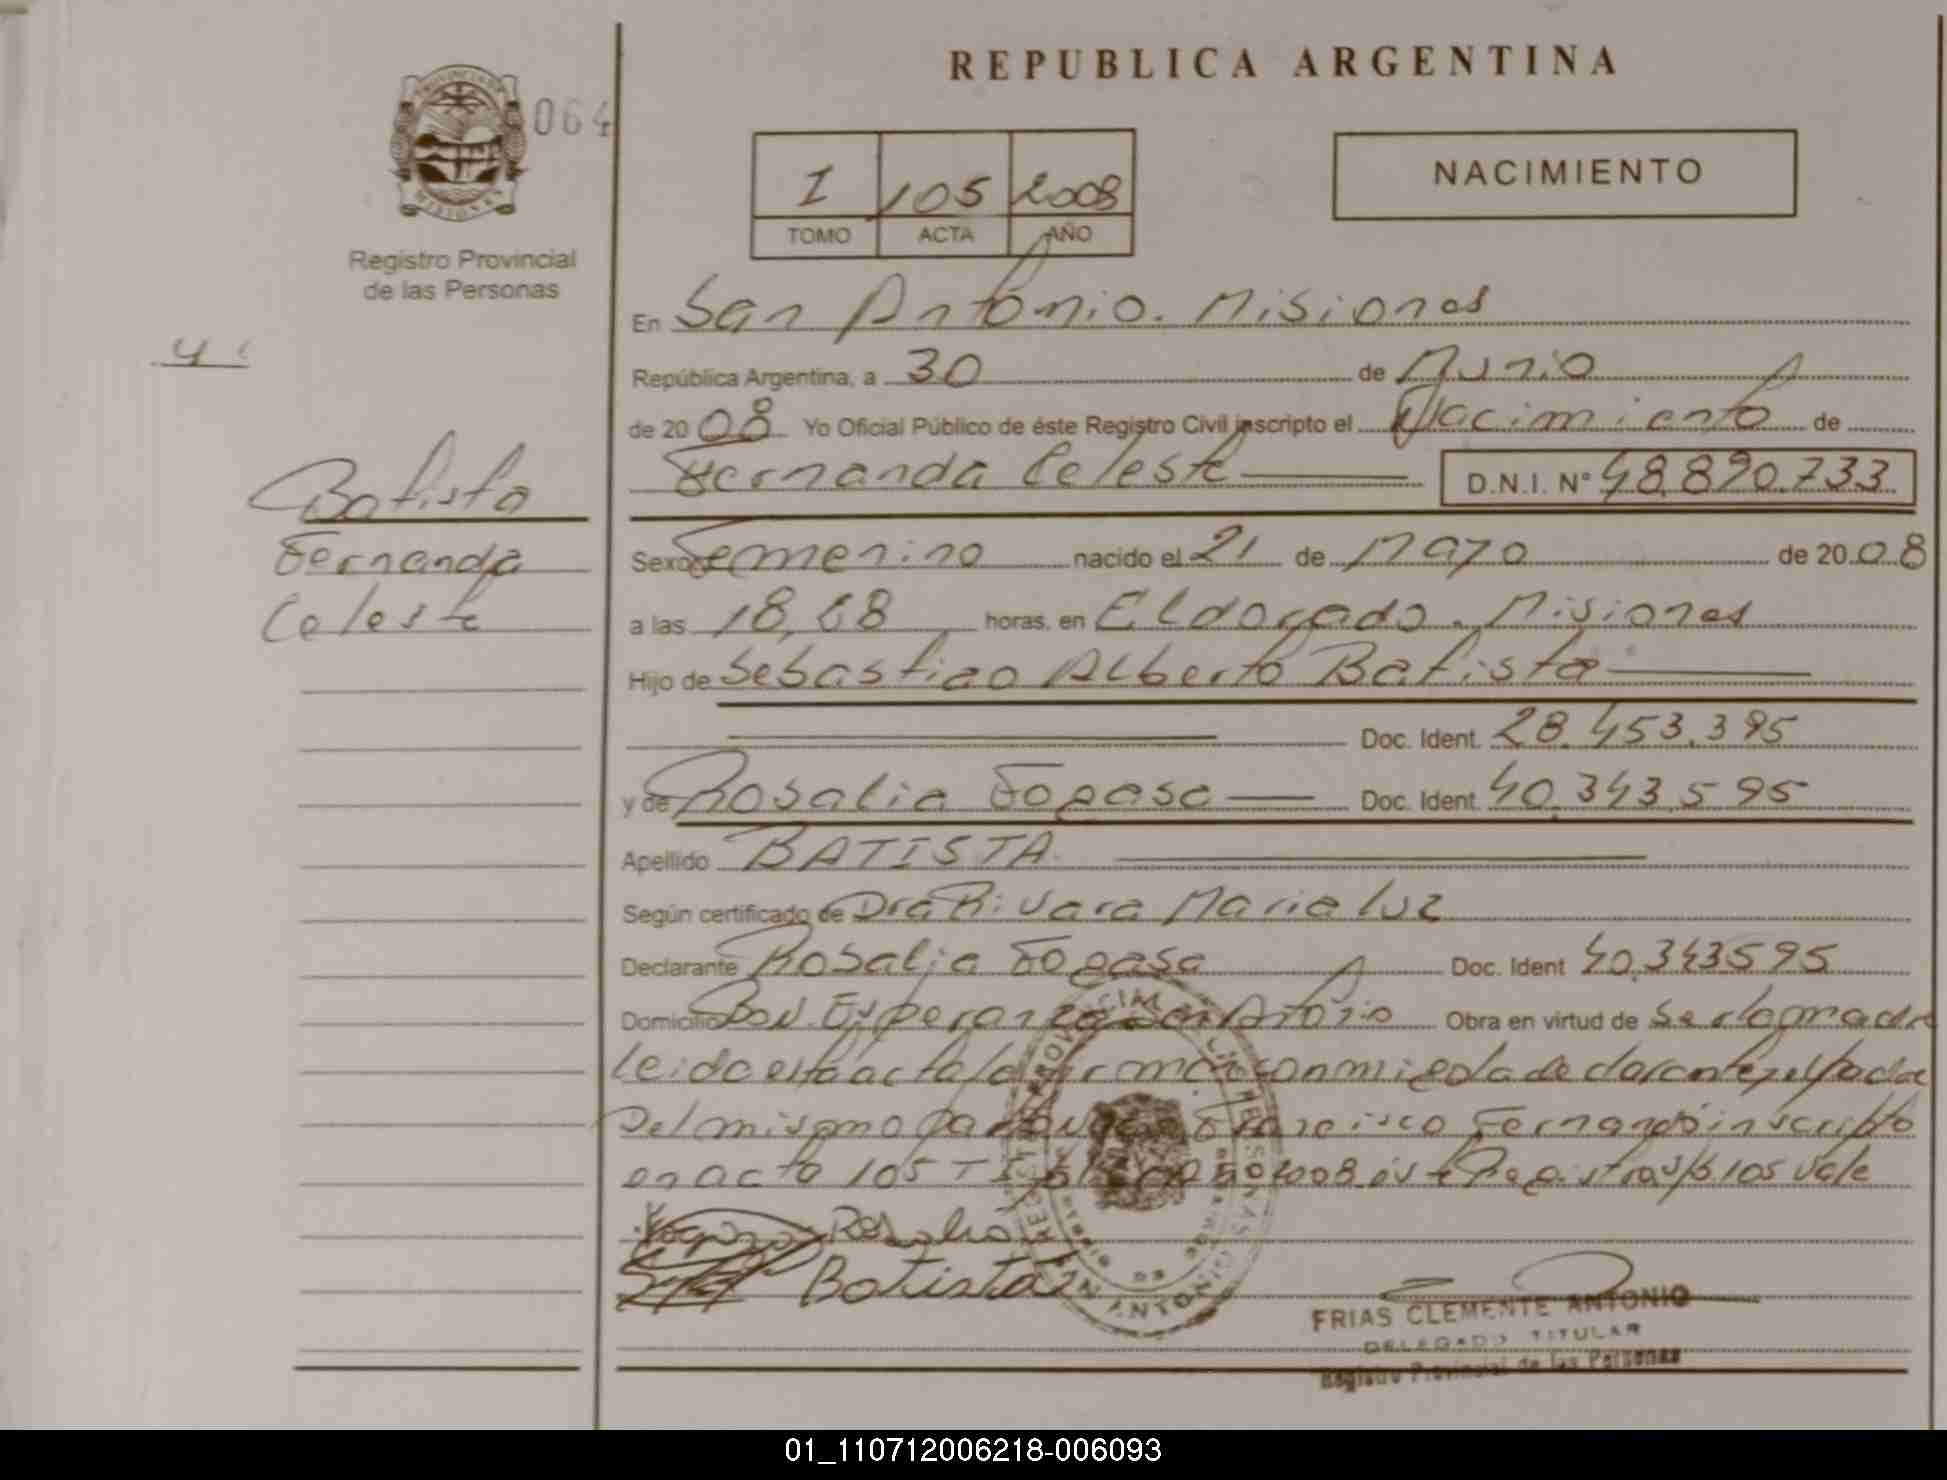 REPUBLICA ARGENTINA
PROVINCIA DE
MISIONES
064
I 105 2008
TOMO ACTA AÑO
NACIMIENTO
Registro Provincial
de las Personas
En San Antonio. Misiones
República Argentina, a 30 de Junio
de 2008 Yo Oficial Público de éste Registro Civil inscripto el Nacimiento de
Fernanda Celeste D.N.I. Nº 48.890.733
Batista
Fernanda
Celeste
Sexo Femenino nacido el 21 de Mayo de 2008
a las 18, horas, en Eldorado. Misiones
Hijo de Sebastiao Alberto Batista
Doc. Ident. 28.453.395
y de Rosalia Fogasa Doc. Ident. 40.343.595
Apellido BATISTA
Según certificado de Dra Rivara Maria Luz
Declarante Rosalia Fogasa Doc. Ident 40.343595
Domicilio Esperanza San Antonio Obra en virtud de Ser la madre
Leida esta acta la conmigo la declarante y el padre
Del mismo Francisco Fernando inscripto
en acta 105 T I 2008 Registro 105 Vale
Rosalia
Batista
FRIAS CLEMENTE ANTONIO
DELEGADO TITULAR
Registro Provincial de las Personas
01_110712006218-006093